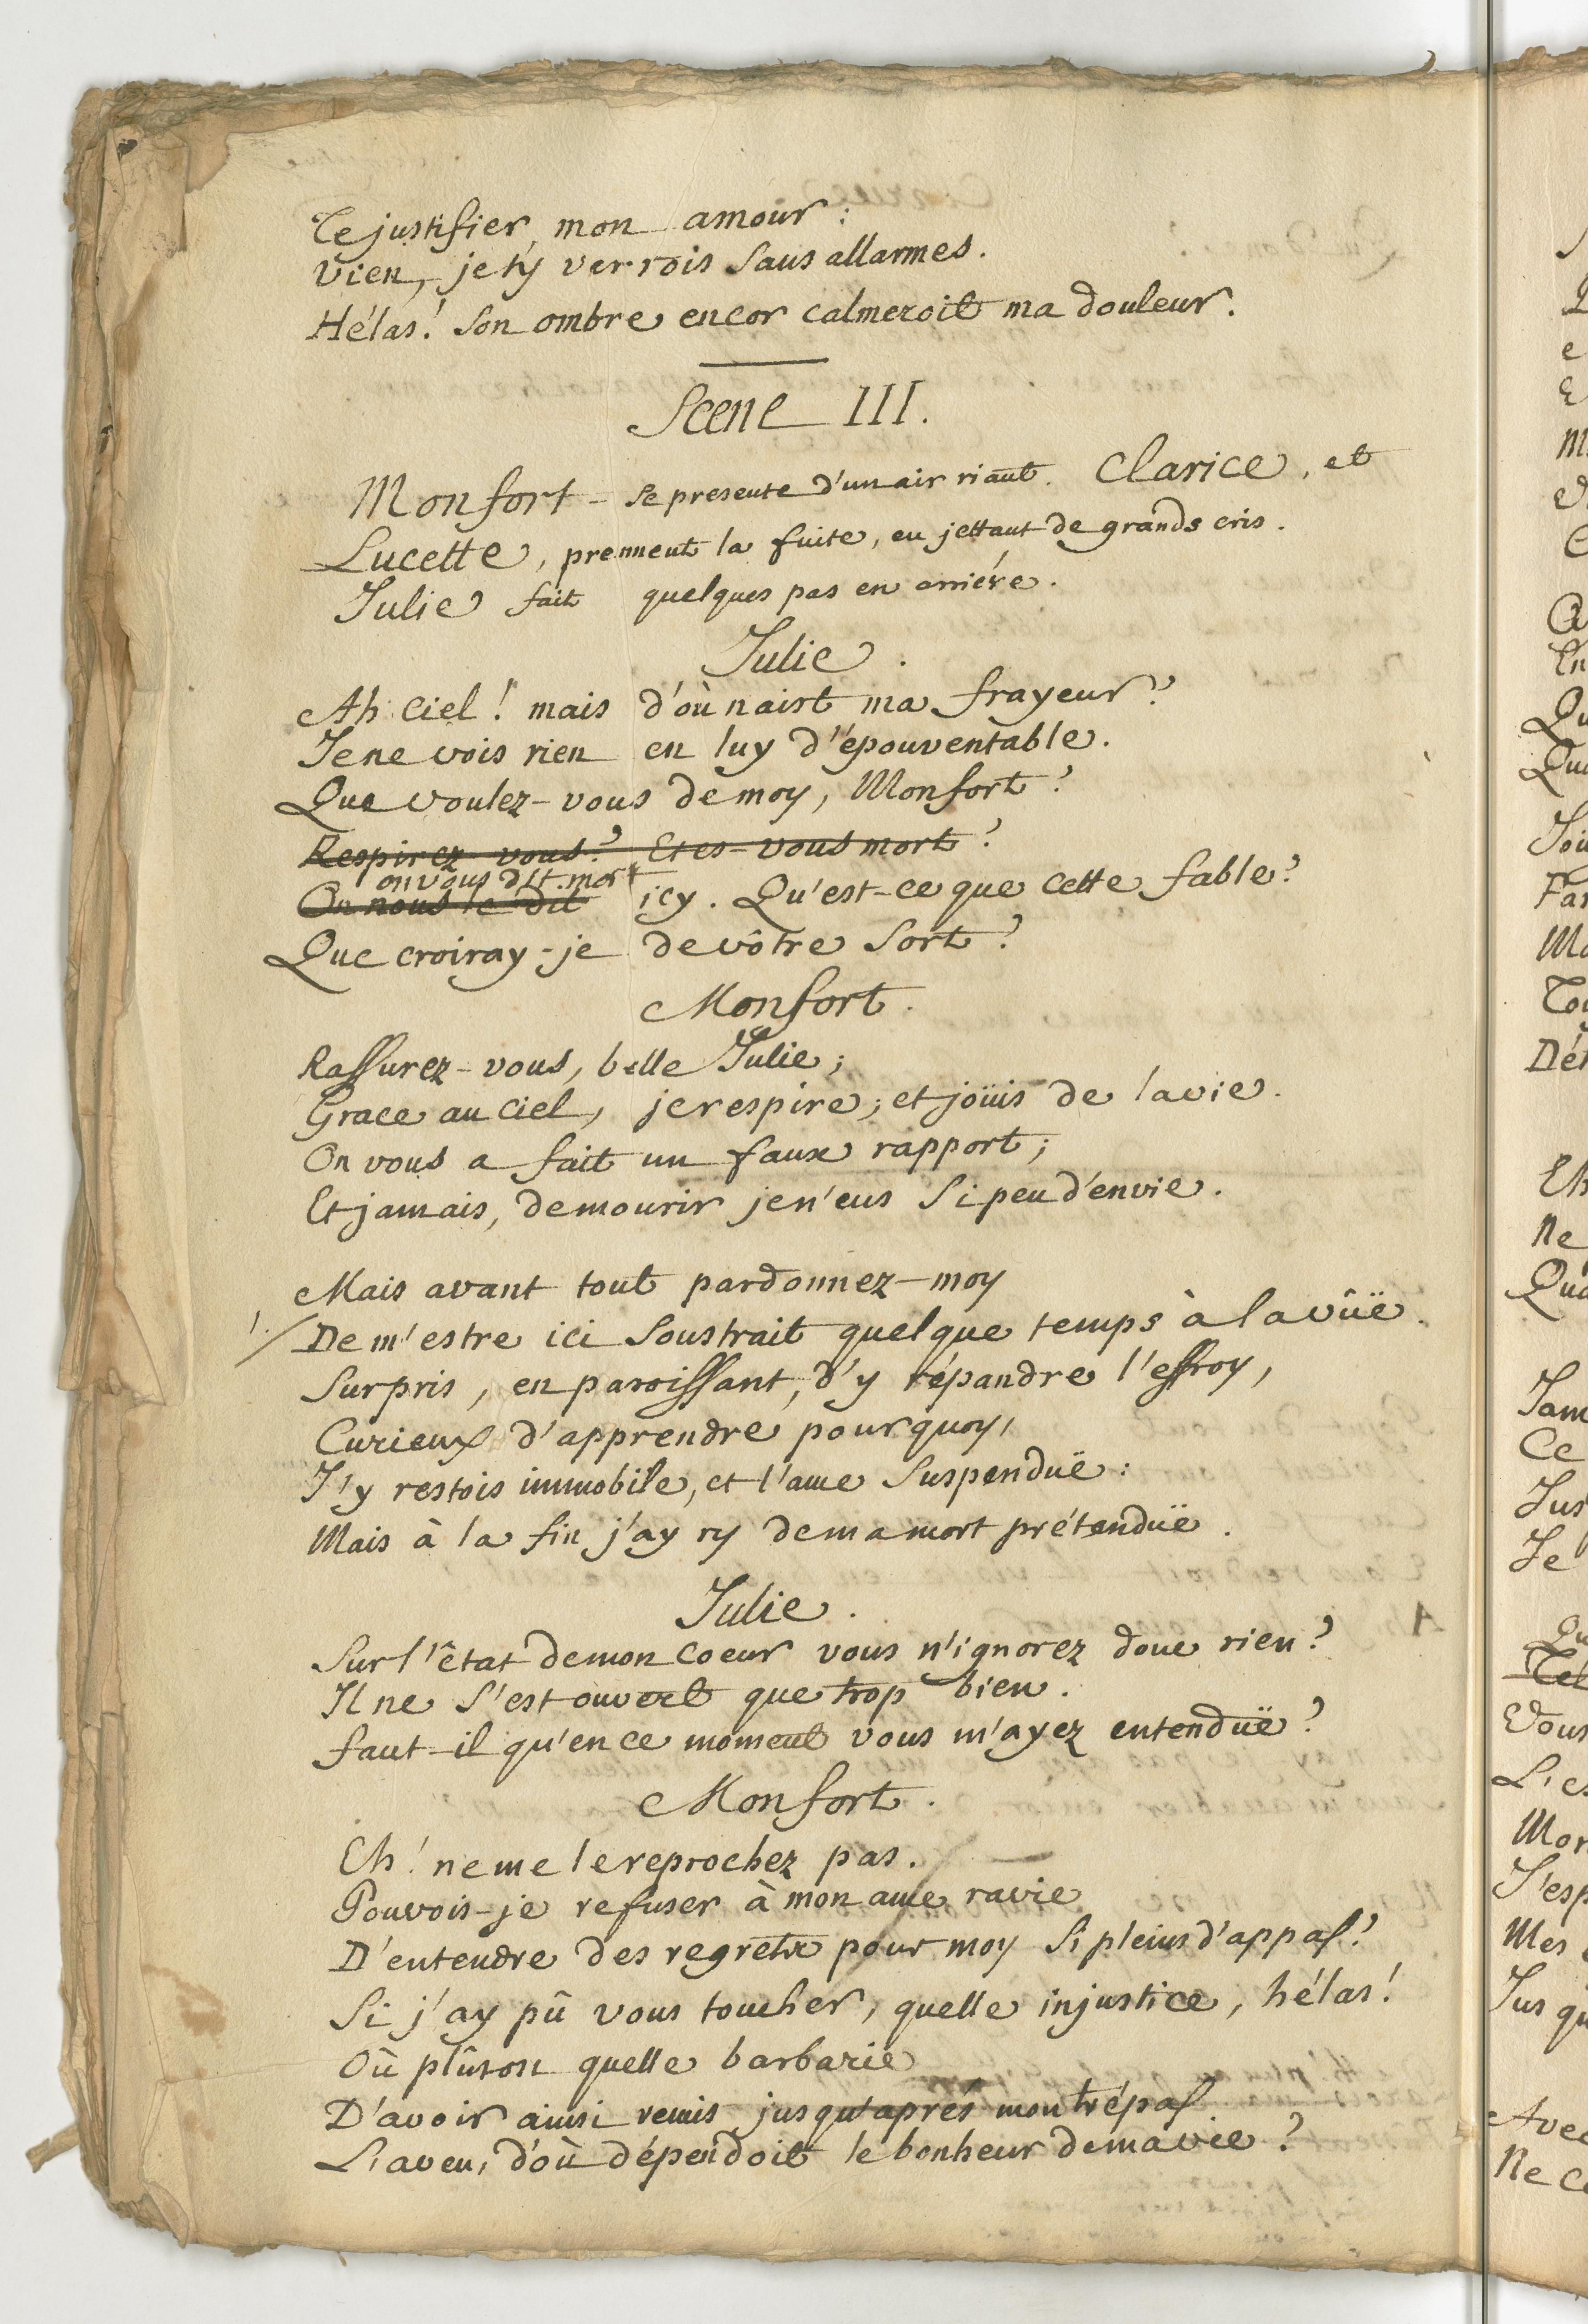 Te justifier, mon amour:
Vien, je t'y verrois sans allarmes.
Hélas! son ombre encor calmeroit ma douleur.
Scene III.
Monfort - se presente d'un air riant. Clarice, et
Lucette, prennent la fuite, en jettant de grands cris.
Julie fait quelques pas en arriére.
Julie.
Ah ciel! mais d'où naist ma frayeur?
Je ne vois rien en luy d'épouventable.
Que voulez-vous de moy, Monfort?
Respirez-vous? Etes-vous mort?
on vous dit mort
On nous le dit icy. Qu'est-ce que cette fable?
Que croiray-je de vôtre sort?
Monfort.
Rassurez-vous, belle Julie;
Grace au ciel, je respire; et joüis de la vie.
On vous a fait un faux rapport;
Et jamais, de mourir je n'eus si peu d'envie.
Mais avant tout pardonnez-moy
De m'estre ici soustrait quelque temps à la vûë.
Surpris, en paroissant, d'y répandre l'effroy,
Curieux d'apprendre pourquoy,
J'y restois immobile, et l'ame suspenduë:
Mais à la fin j'ay ry de ma mort prétenduë.
Julie.
Sur l'êtat de mon coeur vous n'ignorez donc rien?
Il ne s'est ouvert que trop bien.
Faut-il qu'en ce moment vous m'ayez entenduë?
Monfort.
Eh! ne me le reprochez pas.
Pouvois-je refuser à mon ame ravie
D'entendre des regrets pour moy si pleins d'appas?
Si j'ay pû vous toucher, quelle injustice, hélas!
Où plûtost quelle barbarie
D'avoir ainsi remis jusqu'aprés mon trépas
L'aveu, d'où dépendoit le bonheur de ma vie?